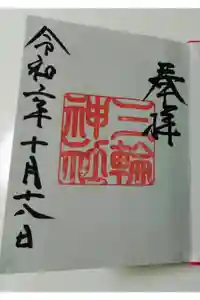 奉拝
三輪
神社
令和二年十月十八日